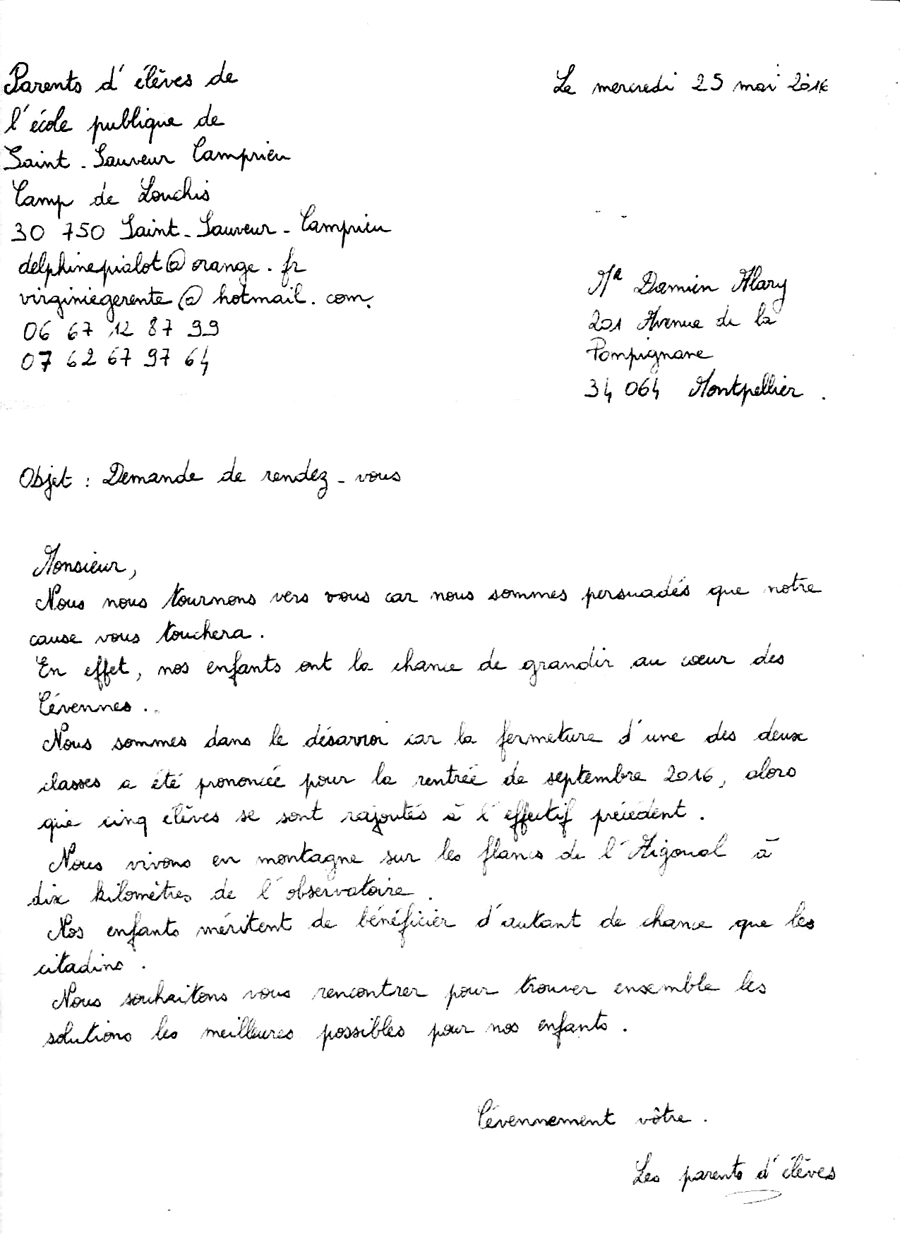 Parents d'élèves de
l'école publique de
Saint-Sauveur Camprieu
Camp de Louchis
30 750 Saint-Sauveur-Camprieu
delphinepialot@orange.fr
virginiegerente@hotmail.com.
06 67 12 87 99
07 62 67 97 64
Le mercredi 25 mai 2016
Mr Damien Alary
201 Avenue de la
Pompignane
34 064 Montpellier.
Objet : Demande de rendez-vous
Monsieur,
Nous nous tournons vers vous car nous sommes persuadés que notre
cause vous touchera.
En effet, nos enfants ont la chance de grandir au cœur des
Cévennes..
Nous sommes dans le désarroi car la fermeture d'une des deux
classes a été prononcée pour la rentrée de septembre 2016, alors
que cinq élèves se sont rajoutés à l'effectif précédent.
Nous vivons en montagne sur les flancs de l'Aigoual à
dix kilomètres de l'observatoire.
Nos enfants méritent de bénéficier d'autant de chance que les
citadins.
Nous souhaitons vous rencontrer pour trouver ensemble les
solutions les meilleures possibles pour nos enfants.
Cévennement vôtre.
Les parents d'élèves